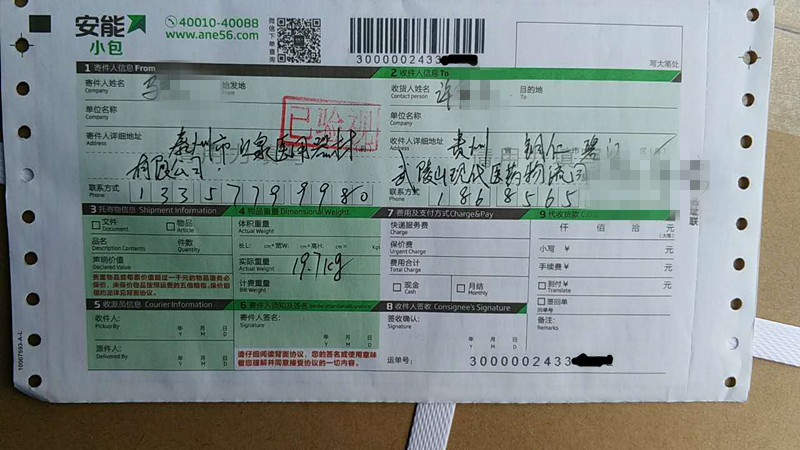 安能
小包
40010-40088
www.ane56.com
微信下单查询
3000002433
写大笔处
1 寄件人信息From
2 收件人信息To
寄件人姓名
Company
始发地
From
收货人姓名
Contact person
许
目的地
单位名称
Company
单位名称
Company
已验视
寄件人详细地址
Address
泰州市
医用器材
有限公司.
收件人详细地址
Address
贵州 铜仁 碧江
武陵山现代医药物流园
联系方式
Phone
13357799980
联系方式
Phone
1868565
3 托寄物信息 Shipment Information
4 物品重量 Dimensional Weight
7 费用及支付方式Charge&Pay
9 代收货款
文件
Document
物品
Article
体积重量
Actual Weight
快递服务费
Charge
仟 佰 拾 元
(大写)
品名
Description Contents
件数
Quantity
长L: cm*宽W: cm*高H: cm= Kg
保价费
Urgent Charge
小写 ¥ 元
声明价值
Declared Value
实际重量
Actual Weight
19.7kg
费用合计
Total Charge
手续费 ¥ 元
计费重量
Bill Weight
现金
Cash
月结
Monthly
到付 ¥ 元
Translate
签回单
回单号
5 收派员信息 Courier Information
8 收件人签收 Consignee's Signature
备注:
Remarks
收件人:
Pickup By
年 月 日
Y M D
寄件人签名:
Signature
年 月 日
Y M D
签收确认:
Signature
年 月 日
Y M D
派件人:
Delivered By
年 月 日
Y M D
请仔细阅读背面协议，您的签名或使用意味
着您理解并同意接受协议的一切内容。
运单号:
3000002433
10007593-A-L